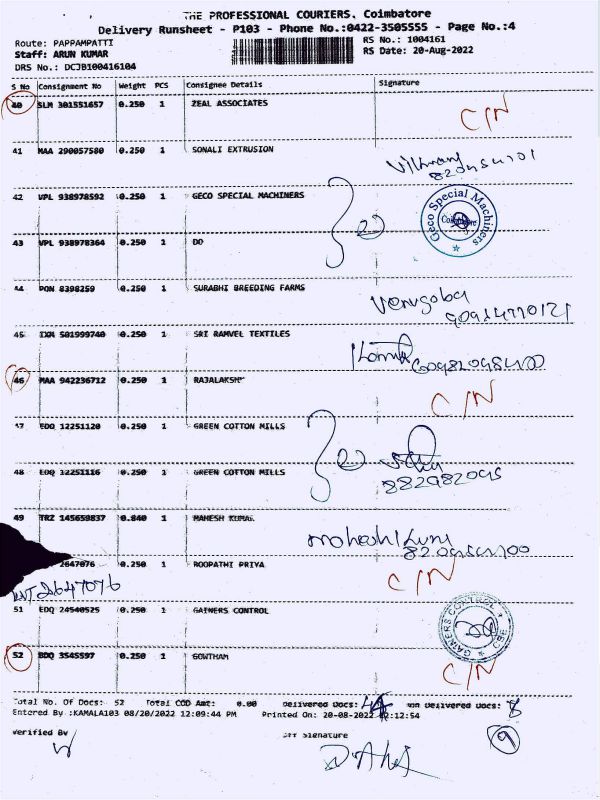 THE PROFESSIONAL COURIERS. Coimbatore
Delivery Runsheet - P103 - Phone No.:0422-3505555 - Page No.:4
Route: PAPPAMPATTI
RS No.: 1004161
Staff: ARUN KUMAR
RS Date: 20-Aug-2022
DRS No.: DCJB100416104
S No Consignment No Weight PCS Consignee Details Signature
40 SLM 301551657 0.250 1 ZEAL ASSOCIATES C/N
41 MAA 290057580 0.250 1 SONALI EXTRUSION
42 VPL 938978592 0.250 1 GECO SPECIAL MACHINERS
Geco Special Machiners
Coimbatore
43 VPL 938978364 0.250 1 DO
44 PON 8398259 0.250 1 SURABHI BREEDING FARMS
45 IXM 501999740 0.250 1 SRI RAMVEL TEXTILES
46 MAA 942236712 0.250 1 RAJALAKSHM C/N
47 EDQ 12251120 0.250 1 GREEN COTTON MILLS
48 EDQ 12251116 0.250 1 GREEN COTTON MILLS
882982095
49 TRZ 145659837 0.840 1 MAHESH KUMAR
2647076 0.250 1 ROOPATHI PRIYA C/N
2647076
51 EDQ 24540525 0.250 1 GAINERS CONTROL
GAINERS CONTROL CBE
52 BDQ 3545597 0.250 1 GOWTHAM C/N
Total No. Of Docs: 52 Total COD Amt: 0.00 Delivered Docs: Non Delivered Docs: 8
Entered By :KAMALA103 08/20/2022 12:09:44 PM Printed On: 20-08-2022 12:12:54
9
Verified By
Signature